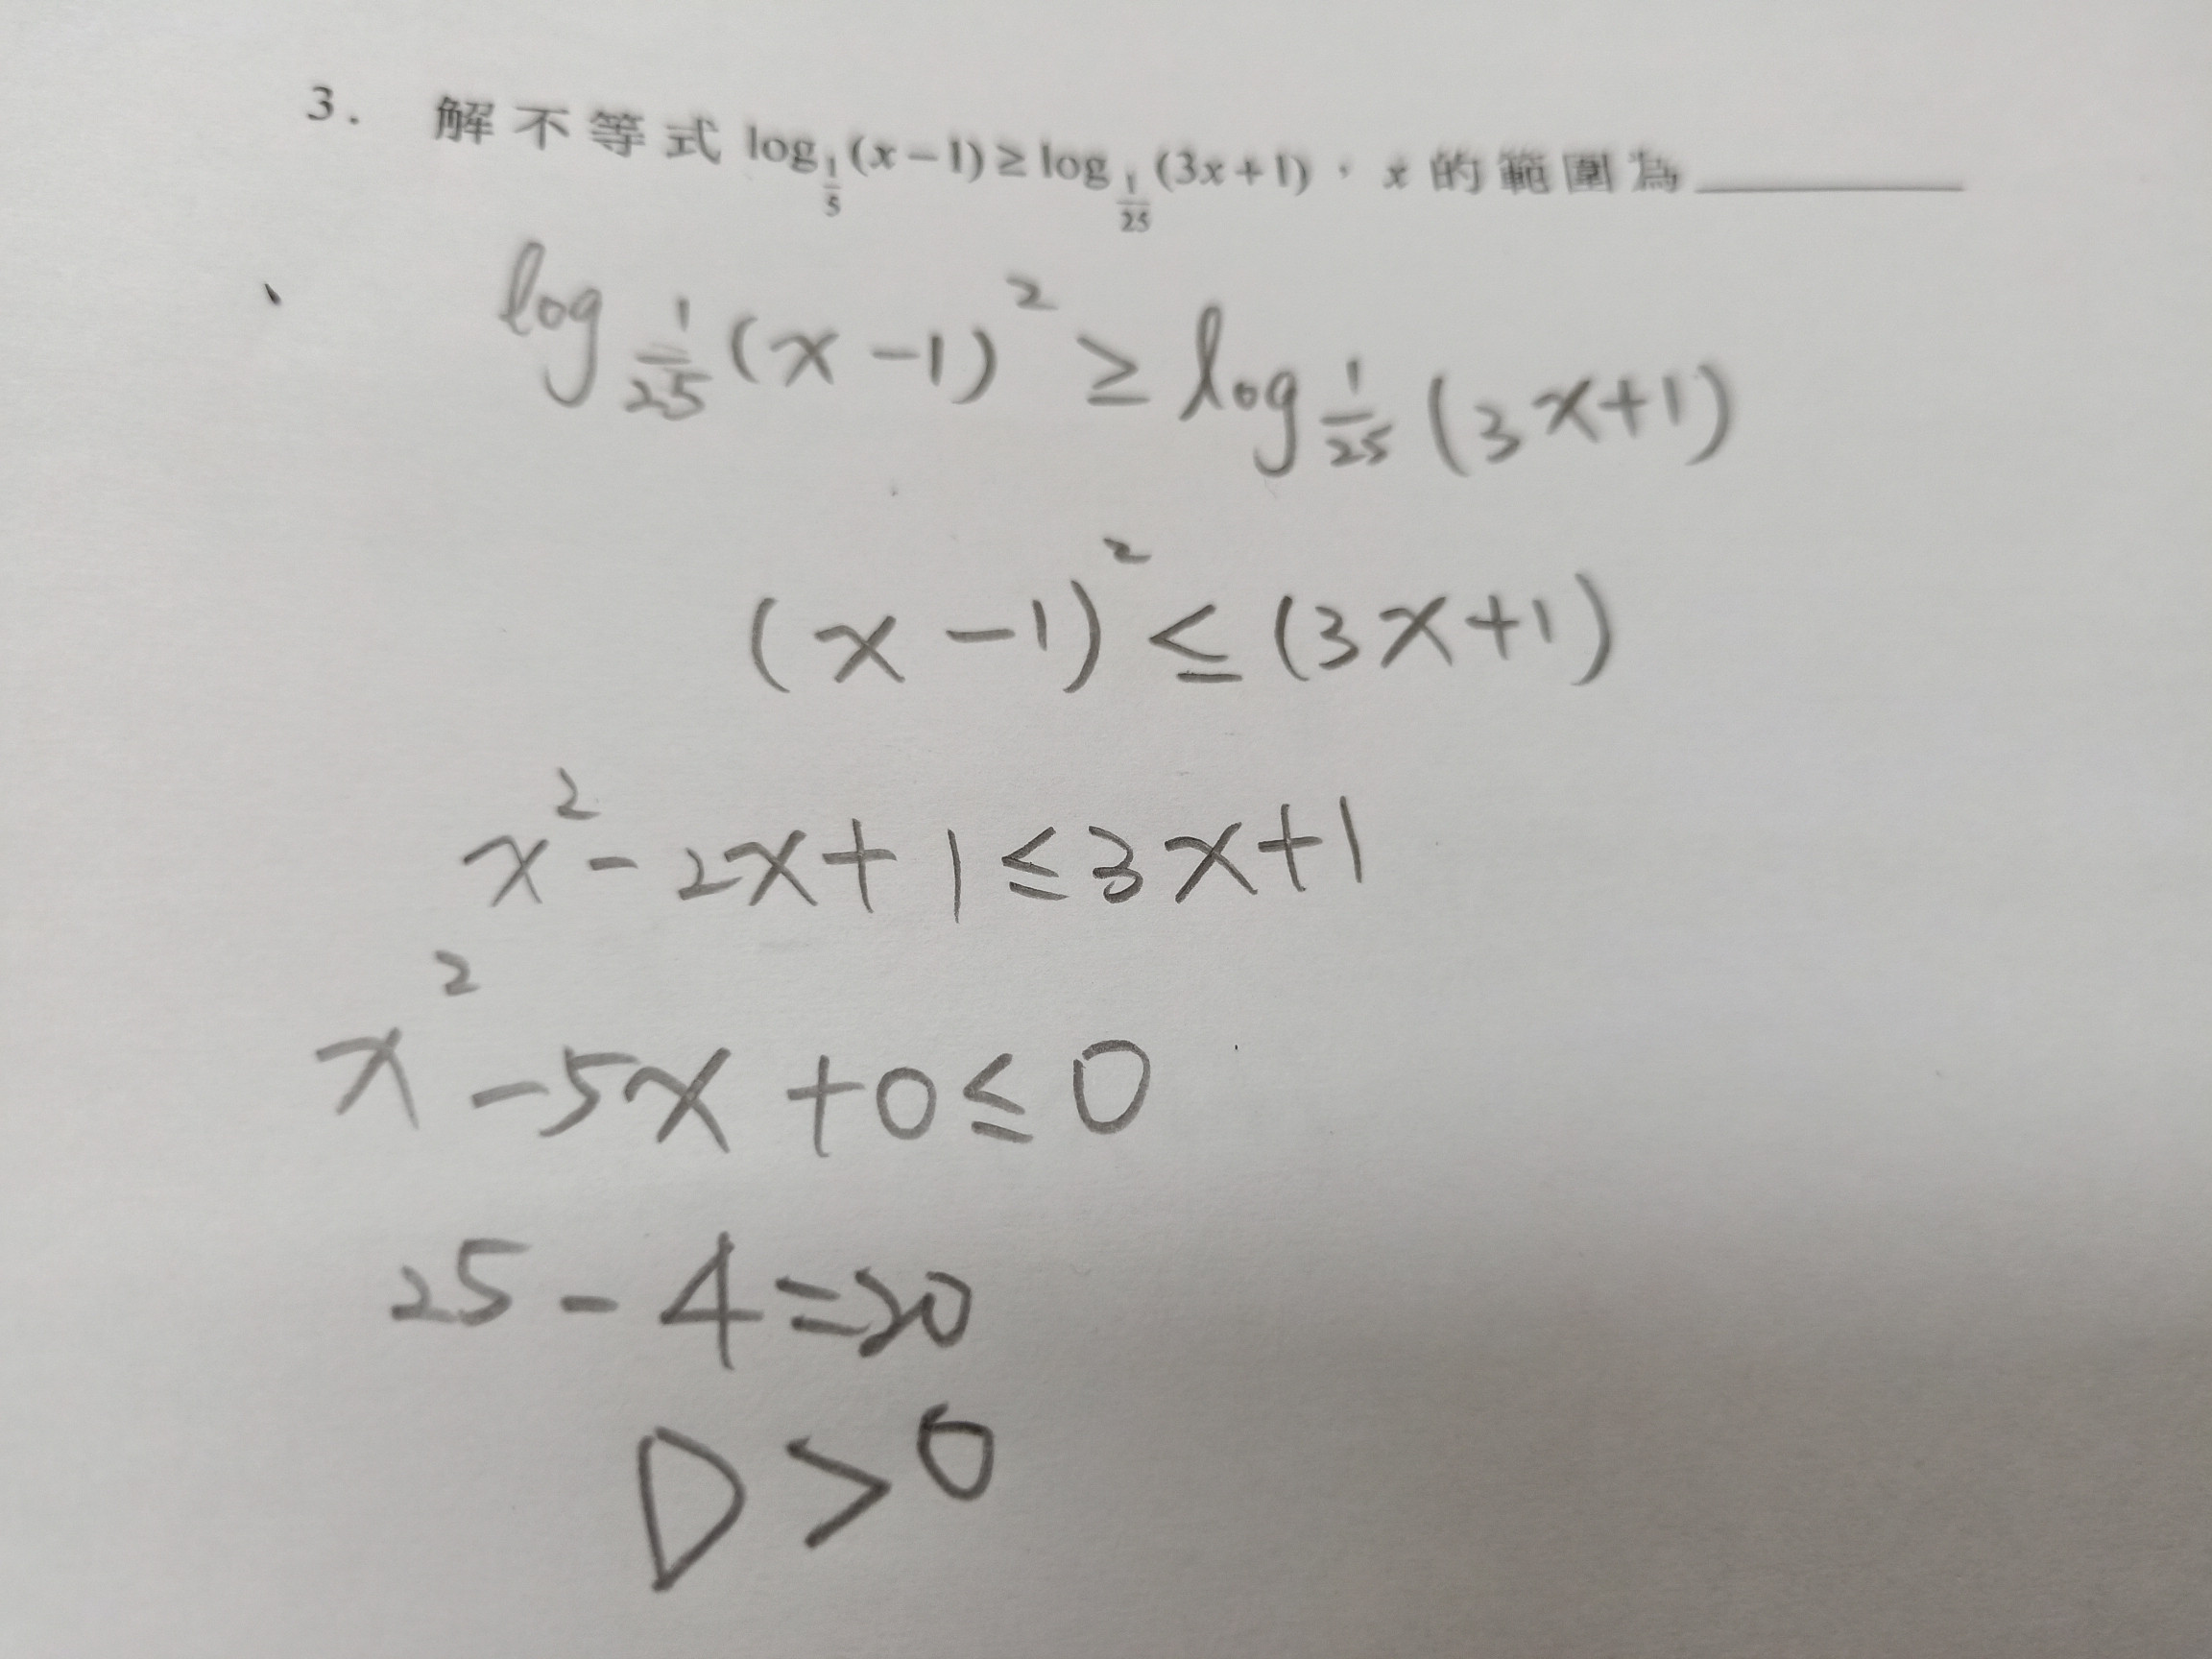 3. 解不等式 log_{1/5}(x-1) ≥ log_{1/25}(3x+1),x的範圍為________
log_{1/25}(x-1)² ≥ log_{1/25}(3x+1)
(x-1)² ≤ (3x+1)
x²-2x+1≤3x+1
x²-5x+0≤0
25-4=20
D>0